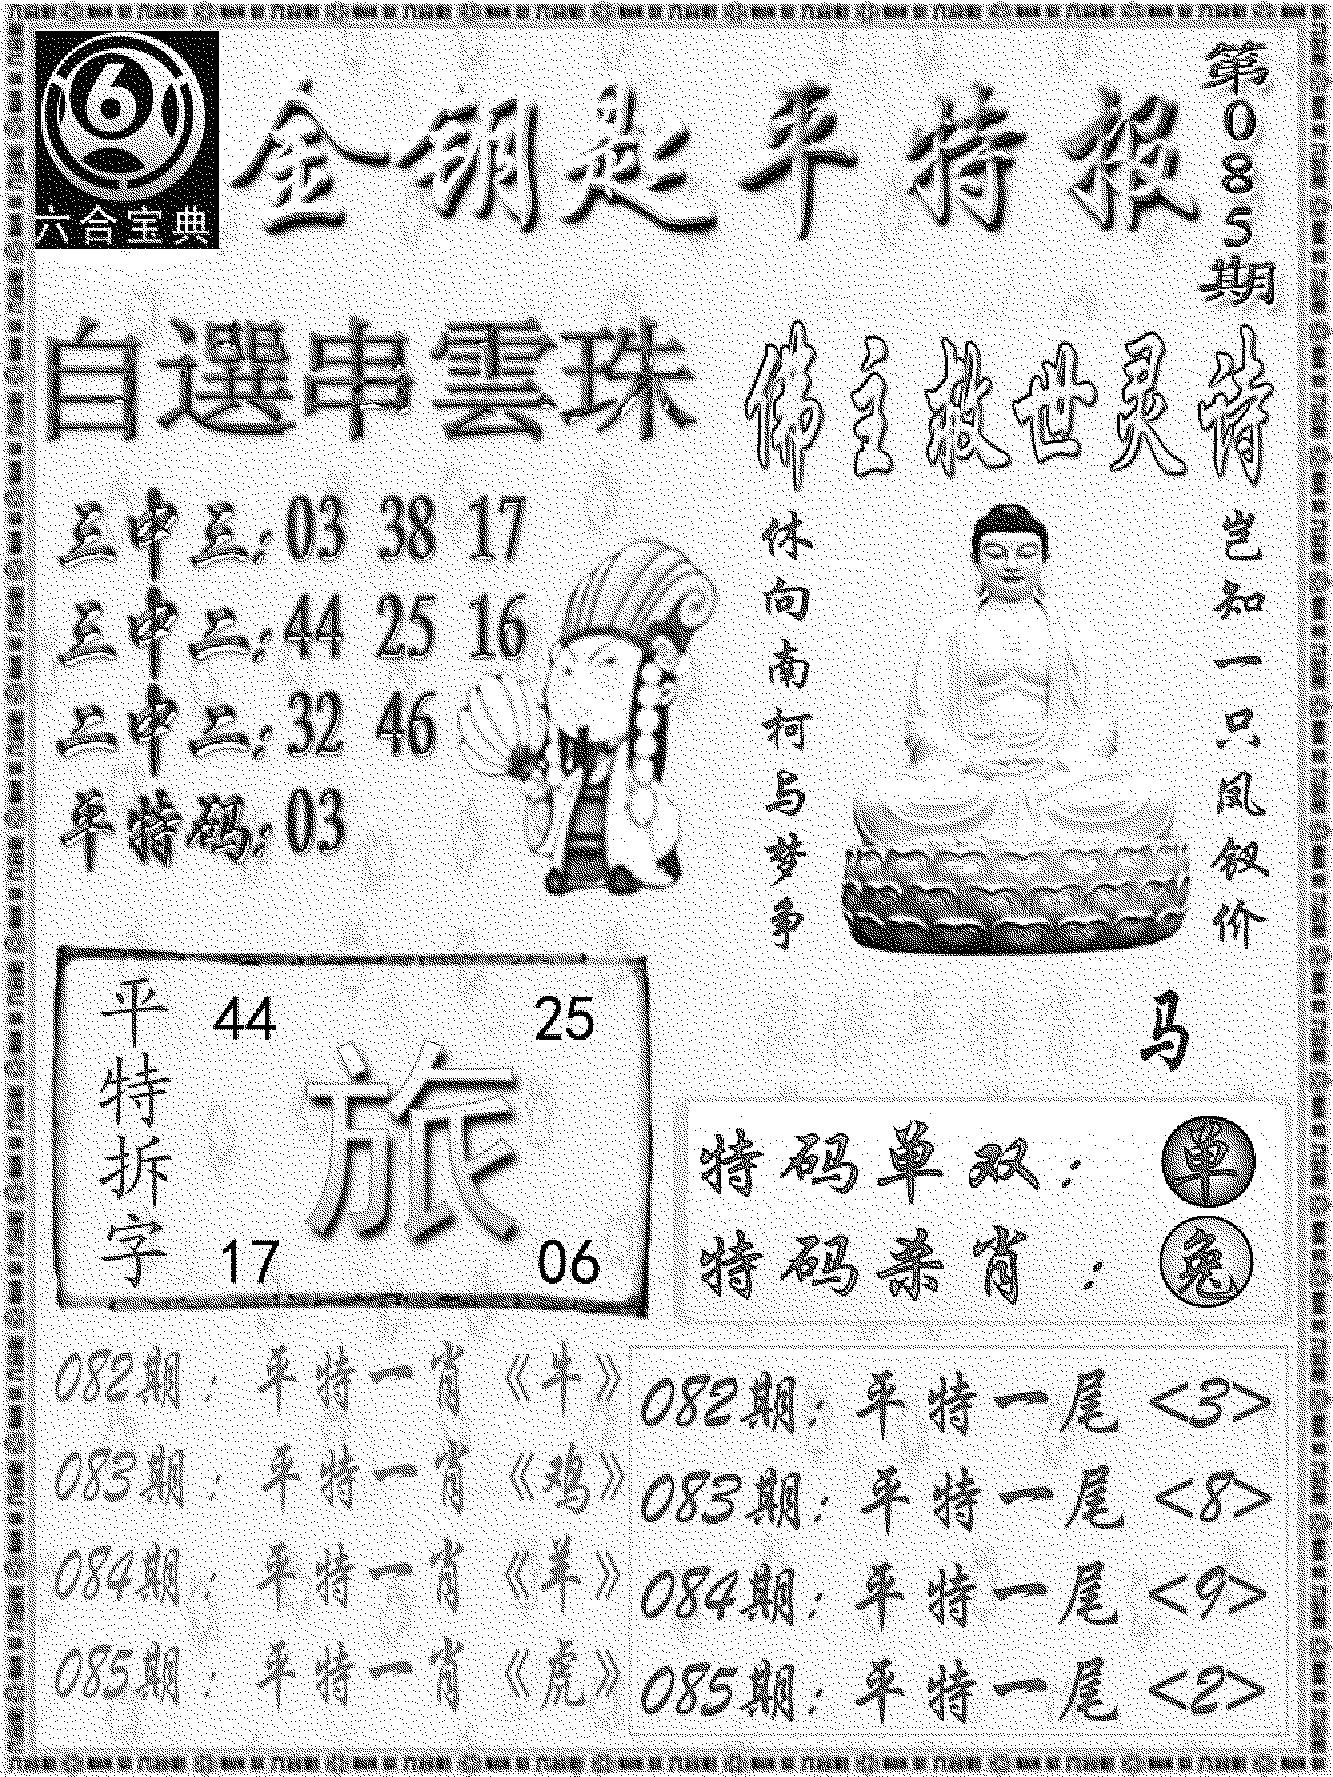 6
六合宝典
金钥匙平特报
第085期
自選串雲珠
三中三:03 38 17
三中二:44 25 16
二中二:32 46
平特码:03
佛主救世灵诗
岂知一只凤钗价
休向南柯与梦争
马
平特拆字
44 25
旅
17 06
特码单双:单
特码杀肖:兔
082期:平特一肖《牛》
083期:平特一肖《鸡》
084期:平特一肖《羊》
085期:平特一肖《虎》
082期:平特一尾<3>
083期:平特一尾<8>
084期:平特一尾<9>
085期:平特一尾<2>